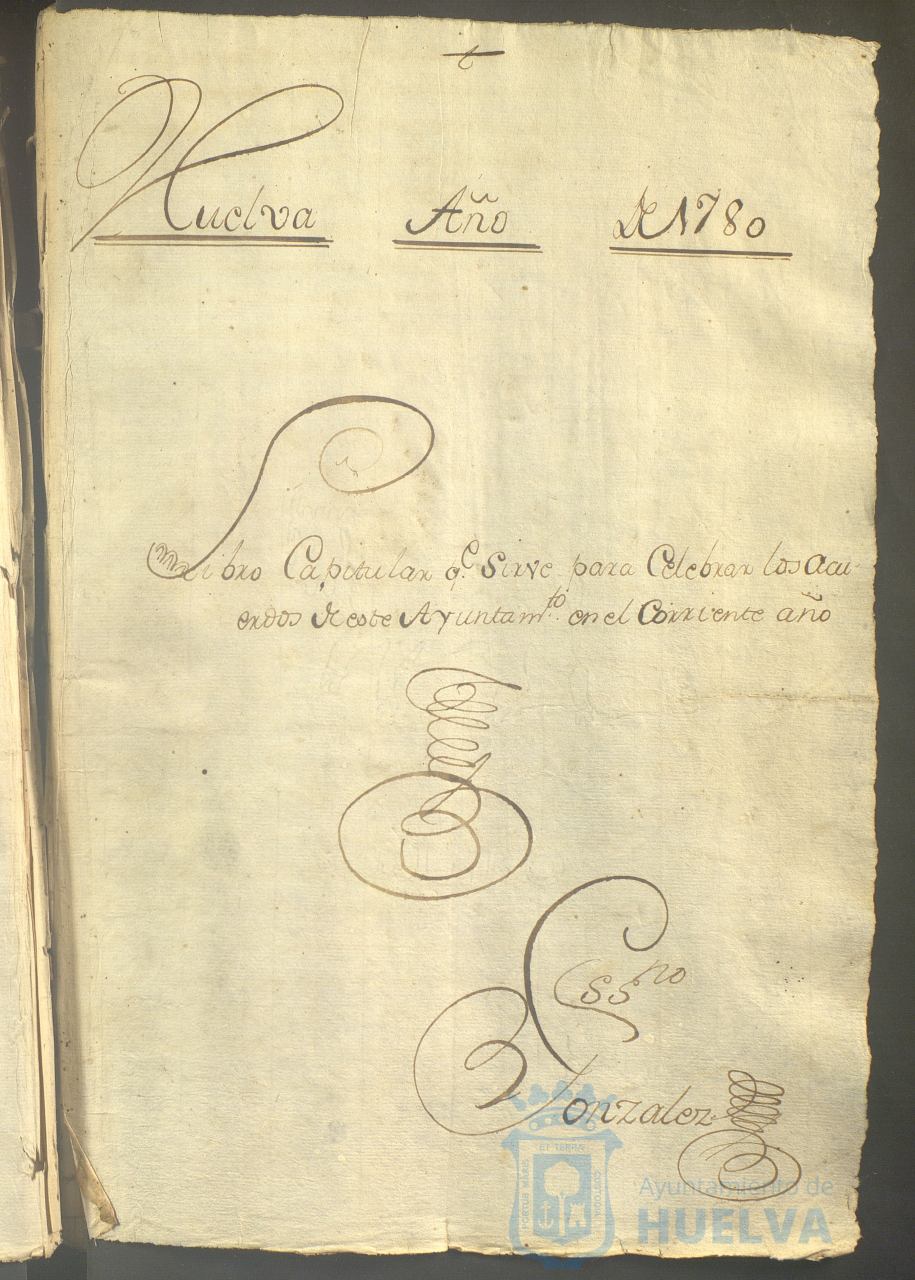 Huelva Año De 1780
Libro Capitular q.e Sirve para Celebrar los Acu-
erdos de este Ayuntam.to en el Corriente año
Essno
Gonzalez
ET TERRÆ
PORTUS MARIS
CUSTODIA
Ayuntamiento de
HUELVA